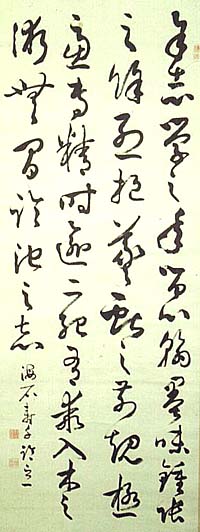 余志學之年留心翰墨味鍾張
之餘烈挹羲獻之前規極
慮專精時逾二紀有乖入木之
術無間臨池之志